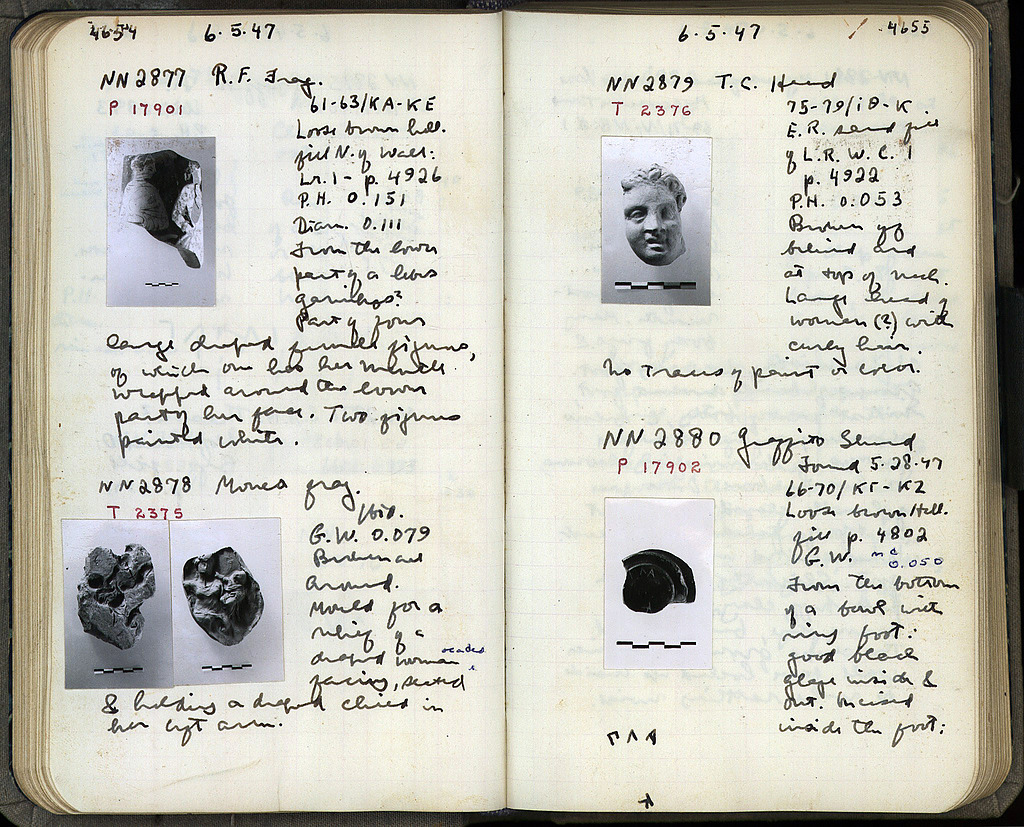 4654 6.5.47
NN 2877 R.F. Frag.
P 17901
61-63/KA-KE
Loose brown hell.
fill N. of Wall:
Lr. 1 - p. 4926
P.H. 0.151
Diam. 0.111
From the lower
part of a
Part of four
large draped female figures,
of which one has her mantle
wrapped around the lower
part of her face. Two figures
painted white.
NN 2878 Mould frag.
T 2375
Ibid.
G.W. 0.079
Broken all
around.
Mould for a
relief of a
draped woman
facing, seated
& holding a draped child in
her left arm.
6.5.47 4655
NN 2879 T.C. Head
T 2376
75-79/ΙΘ-Κ
E.R. sand fill
of L.R.W.C. 1
p. 4922
P.H. 0.053
Broken off
behind and
at top of neck.
Large head of
woman (?) with
curly hair.
No traces of paint or color.
NN 2880 Graffito Sherd
P 17902
Found 5-28-47
66-70/ΚΓ-ΚΖ
Loose brown Hell.
fill p. 4802
G.W. 0.050
From the bottom
of a bowl with
ring foot:
good black
glaze inside &
out. Incised
inside the foot: